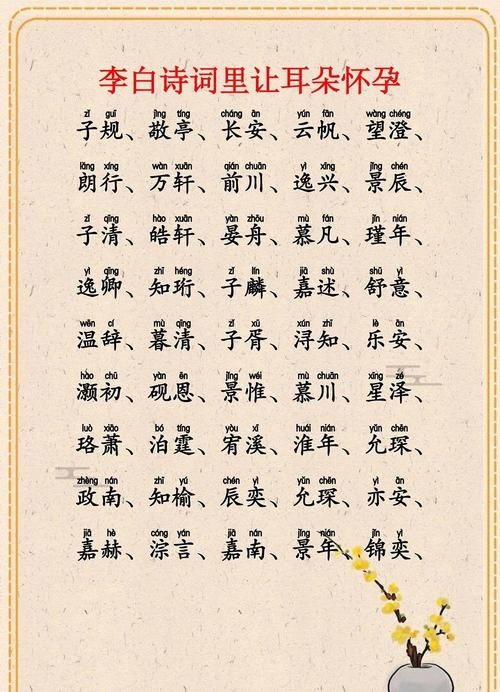 李白诗词里让耳朵怀孕
zǐ guī jìng tíng cháng ān yún fān wàng chéng
子规、敬亭、长安、云帆、望澄、
lǎng xíng wàn xuān qián chuān yì xìng jǐng chén
朗行、万轩、前川、逸兴、景辰、
zǐ qīng hào xuān yàn zhōu mù fán jǐn nián
子清、皓轩、晏舟、慕凡、瑾年、
yì qīng zhī héng zǐ lín jiā shù shū yì
逸卿、知珩、子麟、嘉述、舒意、
wēn cí mù qīng zǐ xū xún zhī lè ān
温辞、暮清、子胥、浔知、乐安、
hào chū yàn ēn jǐng wéi mù chuān xīng zé
灏初、砚恩、景惟、慕川、星泽、
luò xiāo bó tíng yòu xī huái nián yǔn chēn
珞萧、泊霆、宥溪、淮年、允琛、
zhèng nán zhī yú chén yì yǔn chēn yì ān
政南、知榆、辰奕、允琛、亦安、
jiā hè cóng yán jiā nán jǐng nián jǐn yì
嘉赫、淙言、嘉南、景年、锦奕、